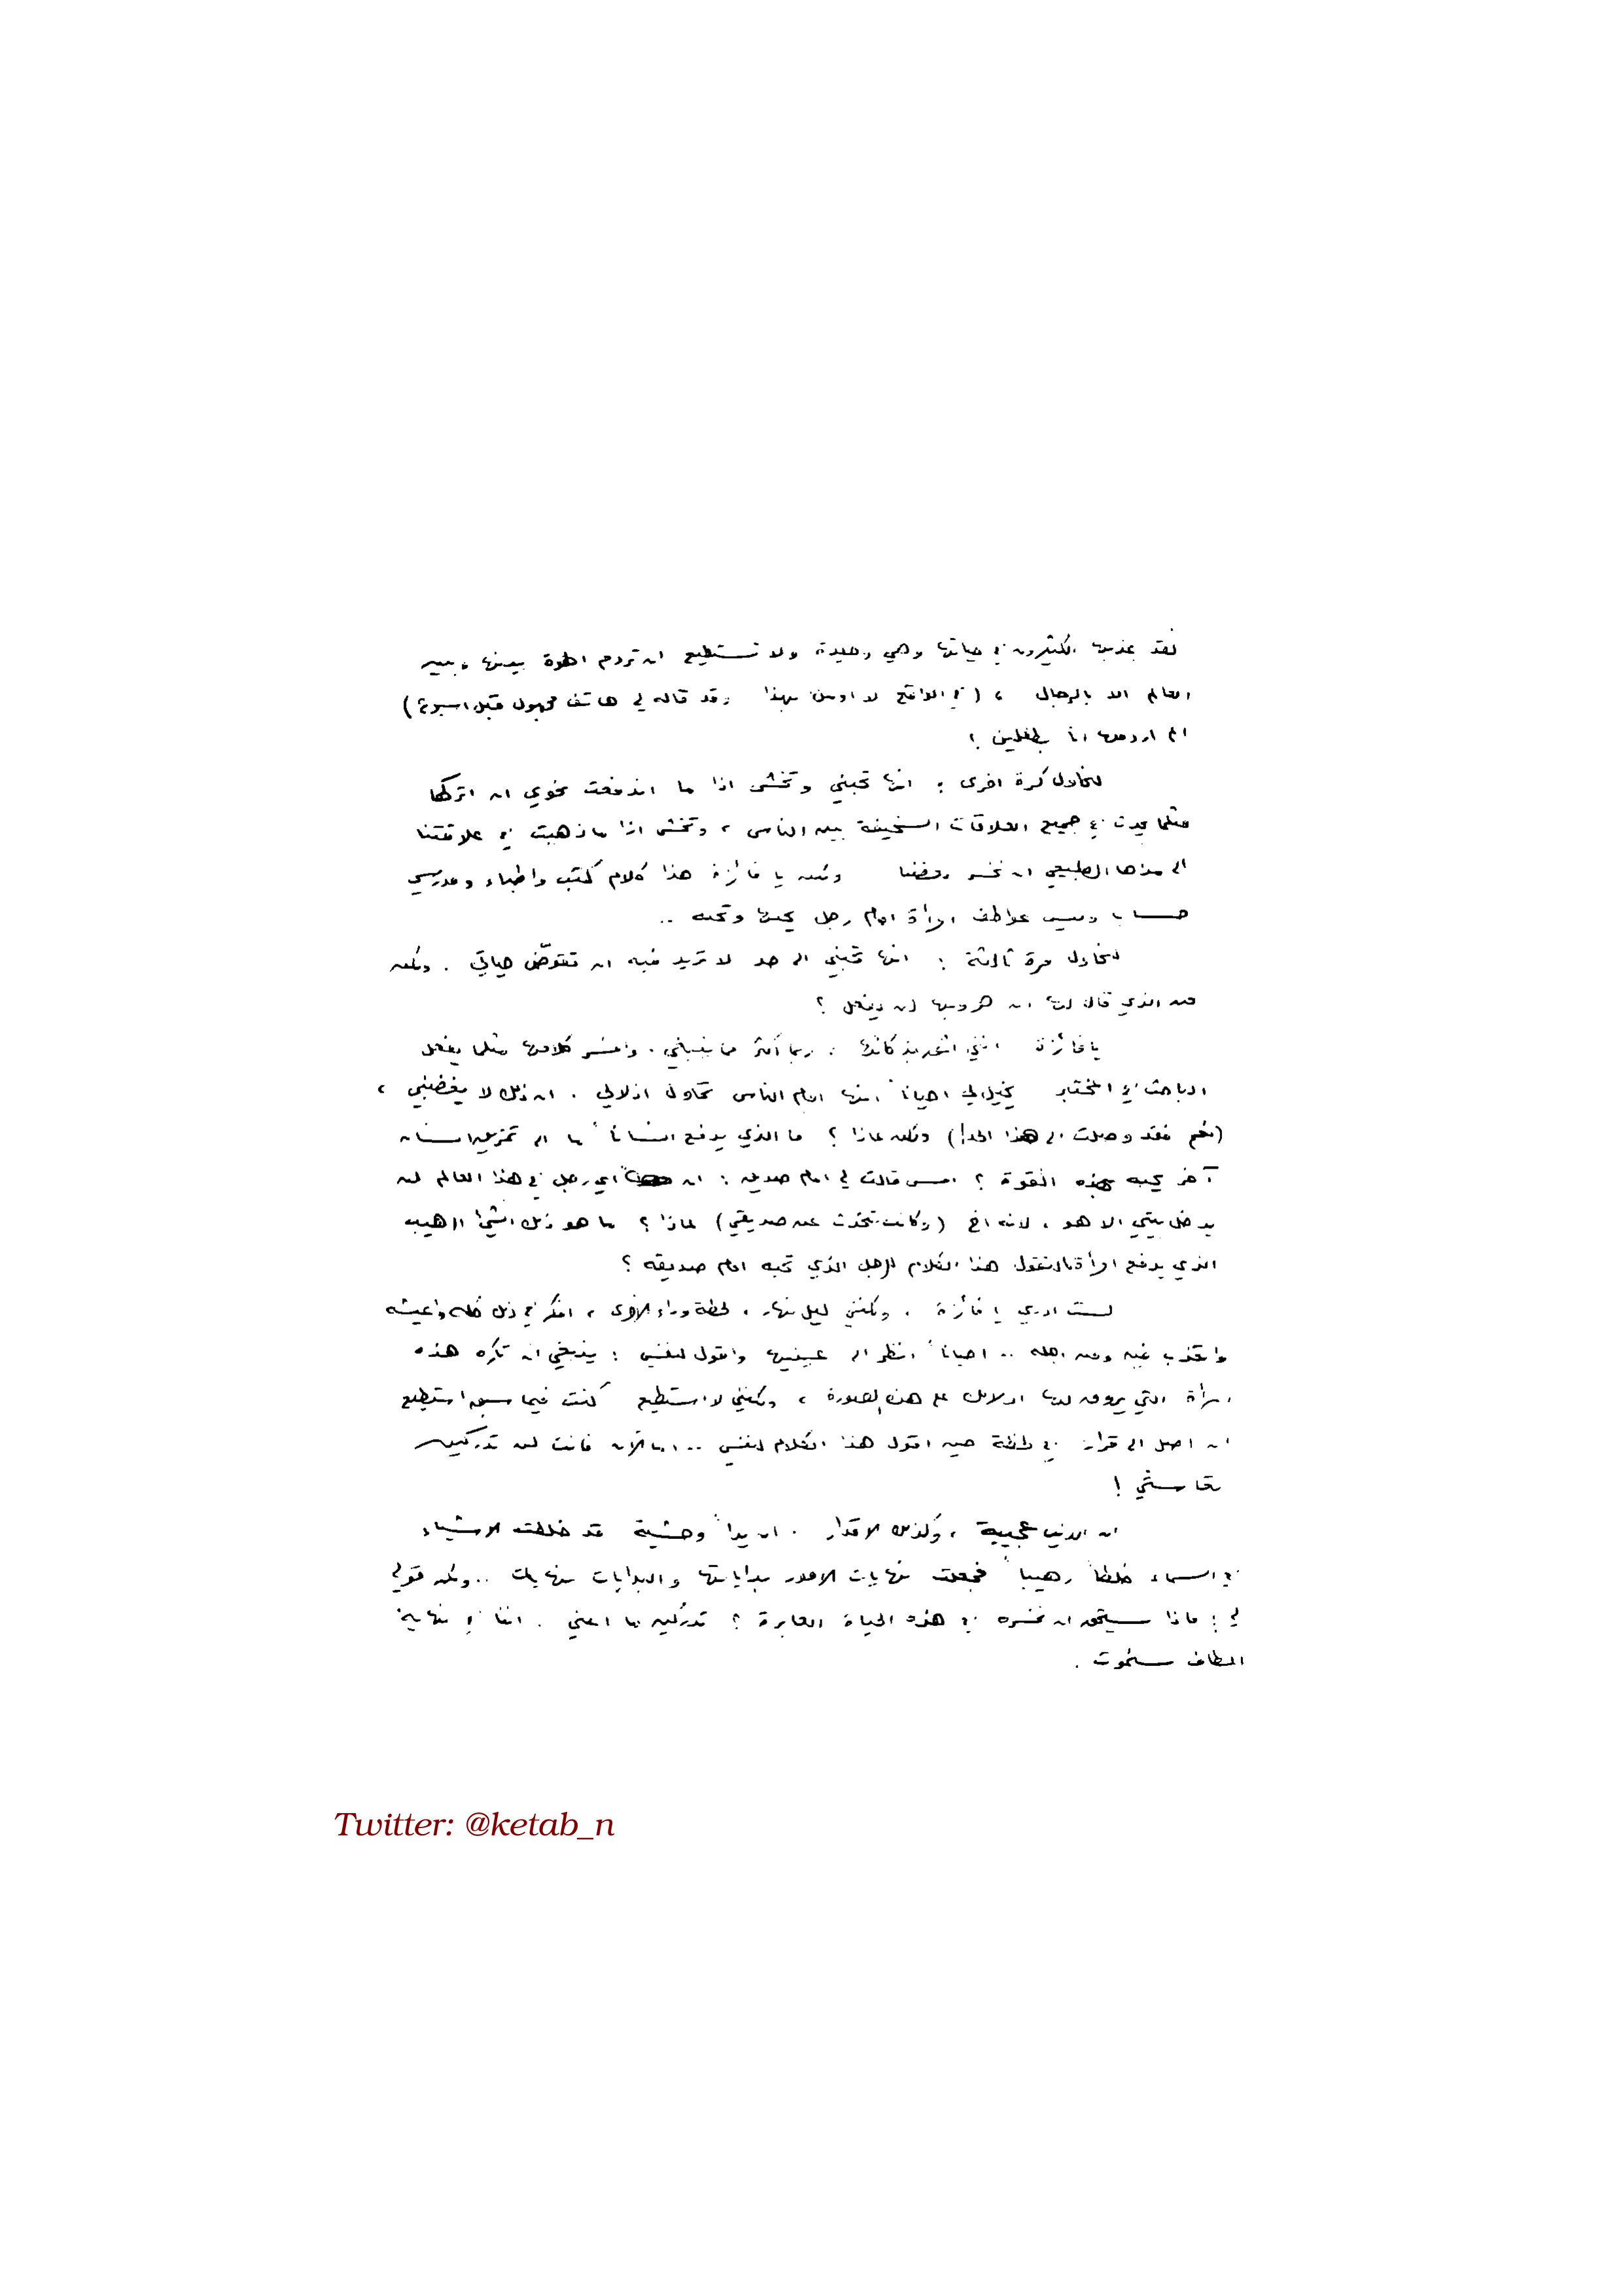 لقد عذبها الكثيرون في حياتها وهي وحيدة ولا تستطيع ان تردم الهوة بينها وبين
العالم الا بالرجال ، ( في الواقع لا اومن بهذا وقد قاله لي هاتف مجهول قبل اسبوع )
الم اردمها انا بطفلين ؟
لنحاول كرة اخرى : انها تحبني وتخشى اذا ما اندفعت نحوي ان اتركها
مثلما يحدث في جميع العلاقات السخيفة بين الناس ، وتخشى اذا ما ذهبت في علاقتنا
الى مداها الطبيعي ان نخسر بعضنا ولكن يا فائزة هذا كلام كتب واطباء ومدرسي
حساب وليس عواطف امرأة امام رجل يحبها وتحبه ..
لنحاول مرة ثالثة : انها تحبني الى حد لا تريد فيه ان تقوّض حياتي . ولكن
من الذي قال لها ان هروبها لن يفعل ؟
يا فائزة انني اشعر بذكائها . ربما اكثر مما ينبغي . وافسر كلامها مثلما يفعل
الباحث في المختبر يخيل الي احياناً انها امام الناس تحاول اذلالي . ان ذلك لا يغضبني ،
(نعم فقد وصلت الى هذا الحد!) ولكن لماذا ؟ ما الذي يدفع انساناً ما الى تمزيق انسان
آخر يحبه بهذه القوة ؟ امس قالت لي امام صديق : ان اي رجل في هذا العالم لن
يدخل بيتي الا هو ، لانه اخ (وكانت تتحدث عن صديقي) لماذا ؟ ما هو ذلك الشيء الرهيب
الذي يدفع امرأة لان تقول هذا الكلام للرجل الذي تحبه امام صديقه ؟
لست ادري يا فائزة ، ولكنني ليل نهار ، لحظة وراء الاخرى ، افكر في ذلك كله واعيشه
واتعذب فيه ومن اجله .. احياناً انظر الى عينيها واقول لنفسي : ينبغي ان تكره هذه
امرأة التي يروق لها اذلالك على هذه الصورة ، ولكنني لا استطيع كنت فيما سبق استطيع
ان اصل الى قرار في لحظة حين اقول هذا الكلام لنفسي .. اما الآن فانت لن تدركين
تعاستي !
ان الدنيا عجيبة ، وكذلك الاقدار . ان يداً وحشية قد خلطت الاشياء
في السماء خلطاً رهيباً فجعلت نهايات الامور بداياتها والبدايات نهايات .. ولكن قولي
لي : ماذا يستحق ان نخسره في هذه الحياة العابرة ؟ تدركين ما اعني . اننا في نهاية
المطاف سنموت .
Twitter: @ketab_n